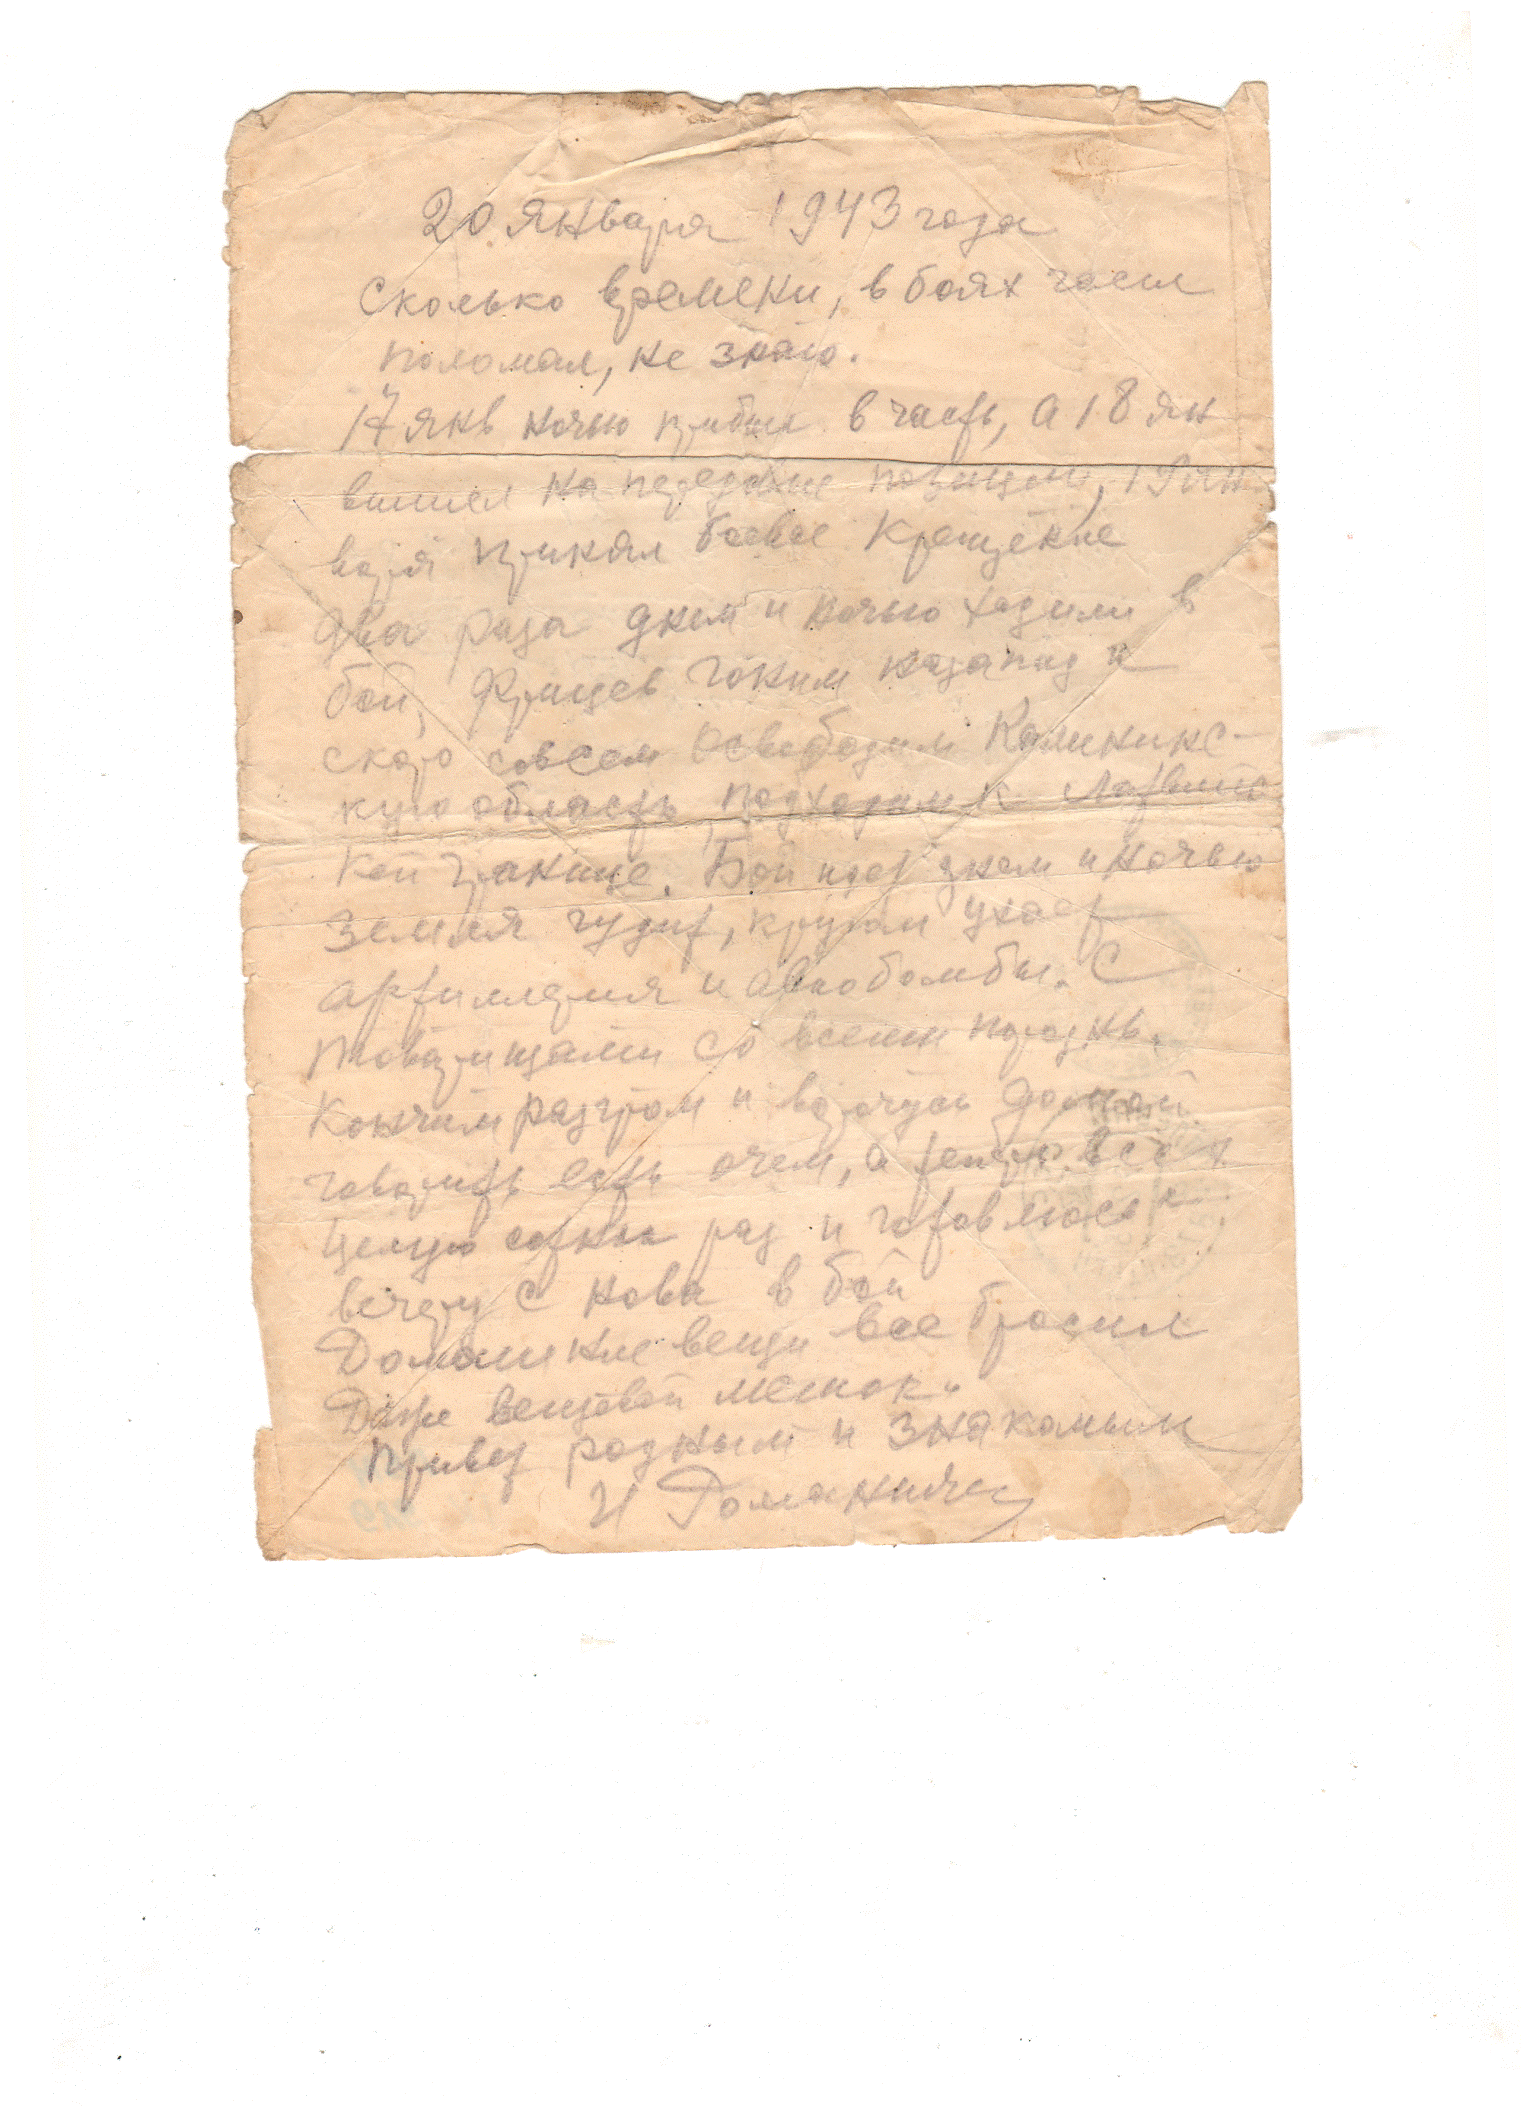 20 января 1943 года
Сколько времени, в боях часы
поломал, не знаю.
17 янв ночью прибыл в часть, а 18 ян
вышел на передовые позиции, 19 ян
варя принял боевое крещение
Два раза днем и ночью ходили в
бой, фрицев гоним на запад и
скоро совсем освободим Калининс-
кую область, подходим к Латвийс
кой границе. Бой идет днем и ночью
Земля гудит, кругом ухает
артиллерия и авиобомбы. С
товарищами со всеми
Кончим разгром и домой
говорить есть о чем, а всех
целую сотни раз и готовлюсь к
вечеру с нова в бой
Домашние вещи все бросил
Даже вещевой мешок.
Привет родным и знакомым
И Романычев